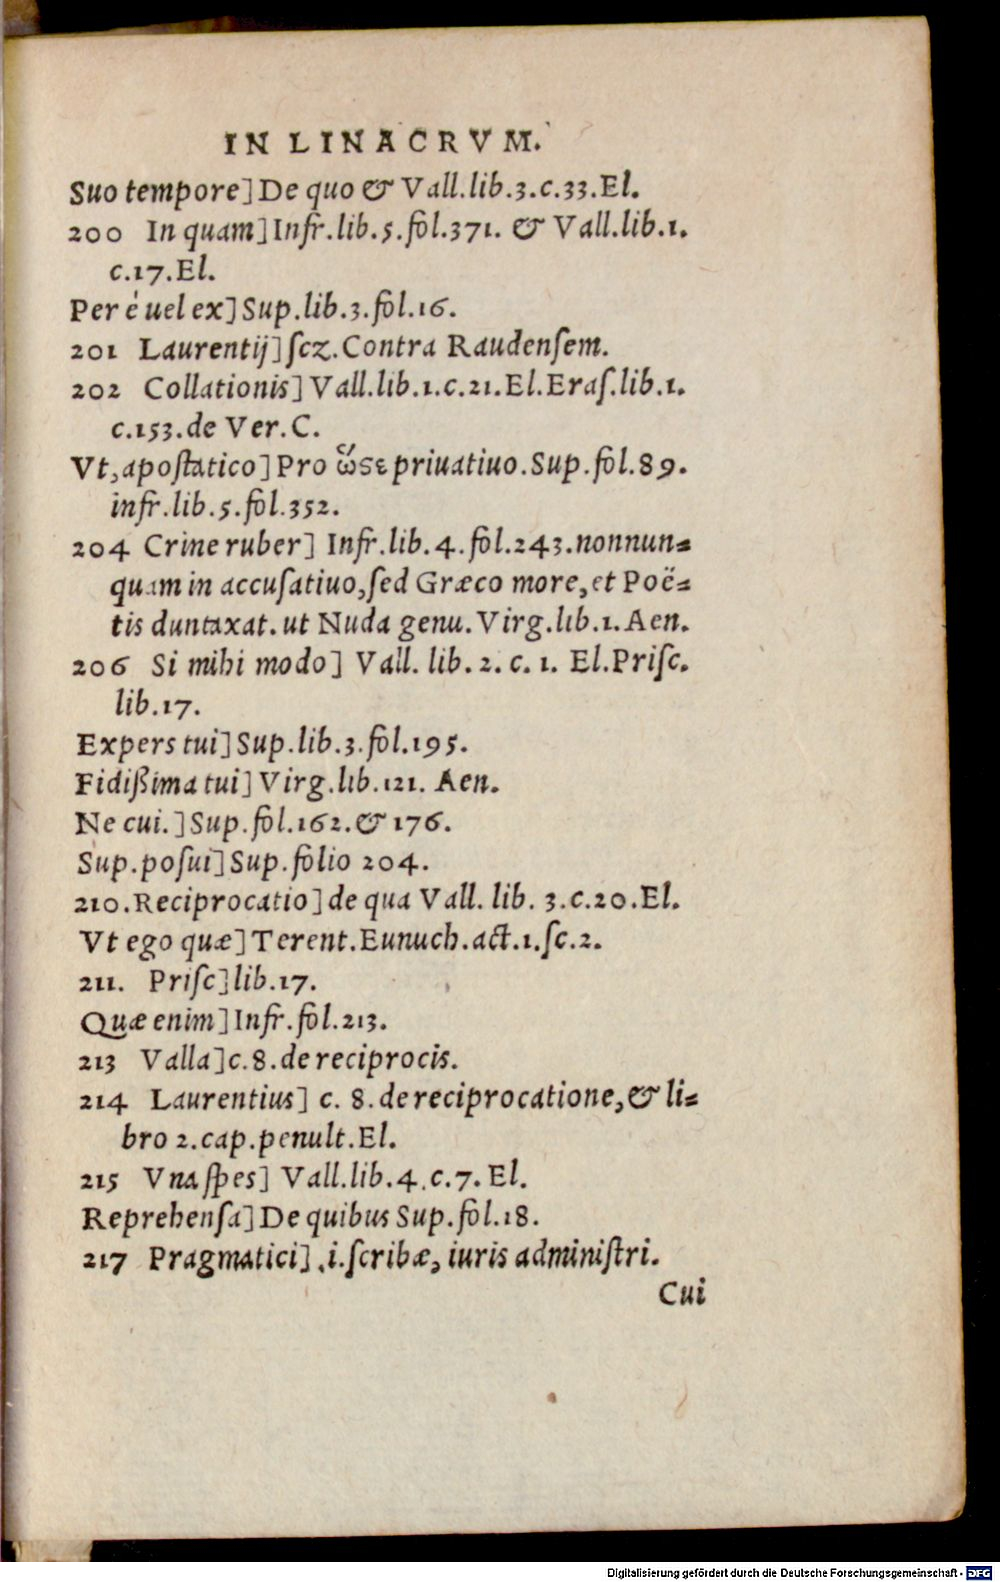 IN LINACRVM.
Suo tempore] De quo & Vall.lib.3.c.33.El.
200 In quam] Infr.lib.5.fol.371. & Vall.lib.1.
c.17.El.
Per è uel ex] Sup.lib.3.fol.16.
201 Laurentij] ſcz. Contra Raudenſem.
202 Collationis] Vall.lib.1.c.21.El.Eraſ.lib.1.
c.153.de Ver.C.
Vt, apoſtatico] Pro ὥςε priuatiuo. Sup.fol.89.
infr.lib.5.fol.352.
204 Crine ruber] Infr.lib.4.fol.243.nonnun=
quam in accuſatiuo, ſed Græco more, et Poë=
tis duntaxat. ut Nuda genu. Virg.lib.1.Aen.
206 Si mihi modo] Vall. lib. 2. c. 1. El.Priſc.
lib.17.
Expers tui] Sup.lib.3.fol.195.
Fidißima tui] Virg.lib.121. Aen.
Ne cui.] Sup.fol.162.& 176.
Sup.poſui] Sup.folio 204.
210.Reciprocatio] de qua Vall. lib. 3.c.20.El.
Vt ego quæ] Terent.Eunuch.act.1.ſc.2.
211. Priſc] lib.17.
Quæ enim] Infr.fol.213.
213 Valla] c.8.de reciprocis.
214 Laurentius] c. 8. de reciprocatione, & li=
bro 2.cap.penult.El.
215 Vna ſpes] Vall.lib.4.c.7.El.
Reprehenſa] De quibus Sup.fol.18.
217 Pragmatici] .i.ſcribæ, iuris adminiſtri.
Cui
Digitalisierung gefördert durch die Deutsche Forschungsgemeinschaft - DFG